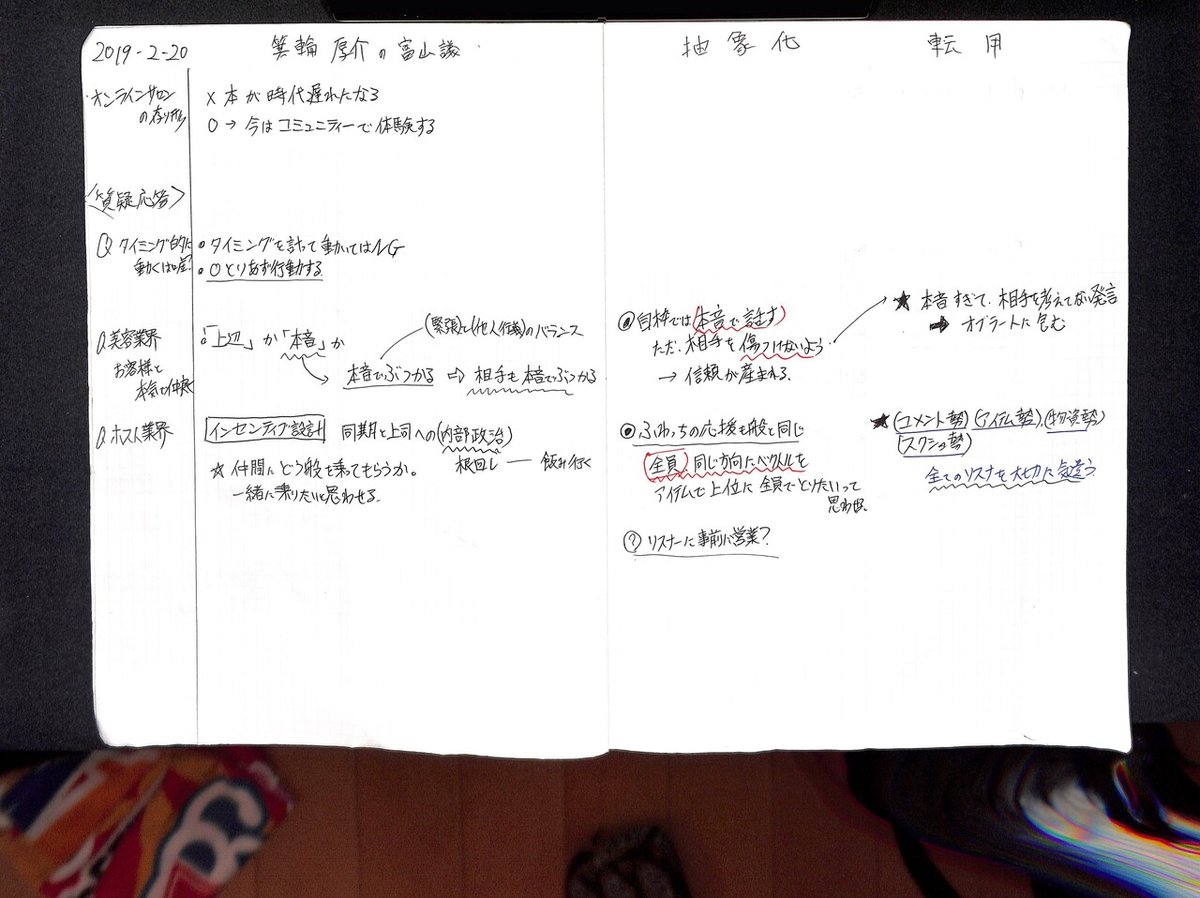 2019-2-20
箕輪厚介の富山講
抽象化
転用
オンラインサロン
の在り方
× 本が時代遅れになる
○ → 今はコミュニティーで体験する
<質疑応答>
Q タイミング的に
動くは嘘?
・タイミングを計って動いてはNG
・○とりあず行動する
Q.美容業界
お客様と
本気で仲良
「上辺」か「本音」か
(緊張)と(他人行儀)のバランス
本音でぶつかる ⇨ 相手も本音でぶつかる
◎自枠では(本音で話す)
ただ、相手を傷つけないよう
→ 信頼が産まれる.
★ 本音すぎて、相手を考えてない発言
➡ オブラートに包む
Q.ホスト業界
インセンティブ設計 同期と上司への(内部政治)
根回し ― 飯み行く
☆ 仲間にどう船を乗ってもらうか。
一緒に乗りたいと思わせる.
◎ふわっちの応援も船と同じ
(全員)同じ方向にベクトルを
アイテムで上位に全員でとりたいって
思わせ
★(コメント勢)(アイテム勢).(物資勢)
(スクショ勢)
全てのリスナを大切に気遣う
? リスナーに事前に営業?